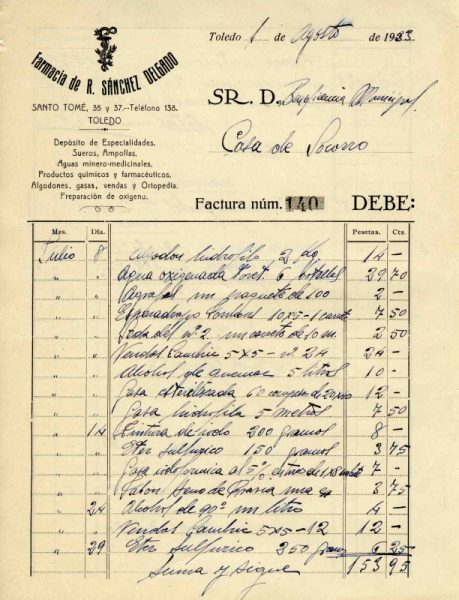 Farmacia de R. SÁNCHEZ DELGADO
SANTO TOMÉ, 35 y 37.--Teléfono 138.
TOLEDO
Depósito de Especialidades,
Sueros, Ampollas,
Aguas minero-medicinales,
Productos químicos y farmacéuticos,
Algodones, gasas, vendas y Ortopedia.
Preparación de oxígeno.
Toledo 1 de Agosto de 1933
SR. D. Beneficencia Municipal
Casa de Socorro
Factura núm. 140 DEBE:
Mes. Día. Pesetas. Cts.
Julio 8 Algodon hidrofilo 2 kg 14 -
" " Agua oxigenada Foret 6 botellas 29 70
" " Agrafes un paquete de 100 2 -
" " Esparadrapo 10 x 5 - 1 7 50
" " Seda del nº 2 un carrete de 10 m. 2 50
" " Vendas Cambric 5 x 5 - nº 24 24 -
" " Alcohol de quemar 5 litros 10 -
" " Gasa esterilizada 60 12 -
" " Gasa hidrofila 5 metros 7 50
" 14 Tintura de iodo 200 gramos 8 -
" " Eter sulfurico 150 gramos 3 75
" " Gasa al 5% 7 -
" " Jabon Heno de Pravia una 3 75
" 24 Alcohol de 90º un litro 4 -
" " Vendas Cambric 5 x 5 - 12 12 -
" 29 Eter sulfurico 250 gramos 6 25
Suma y sigue 153 95